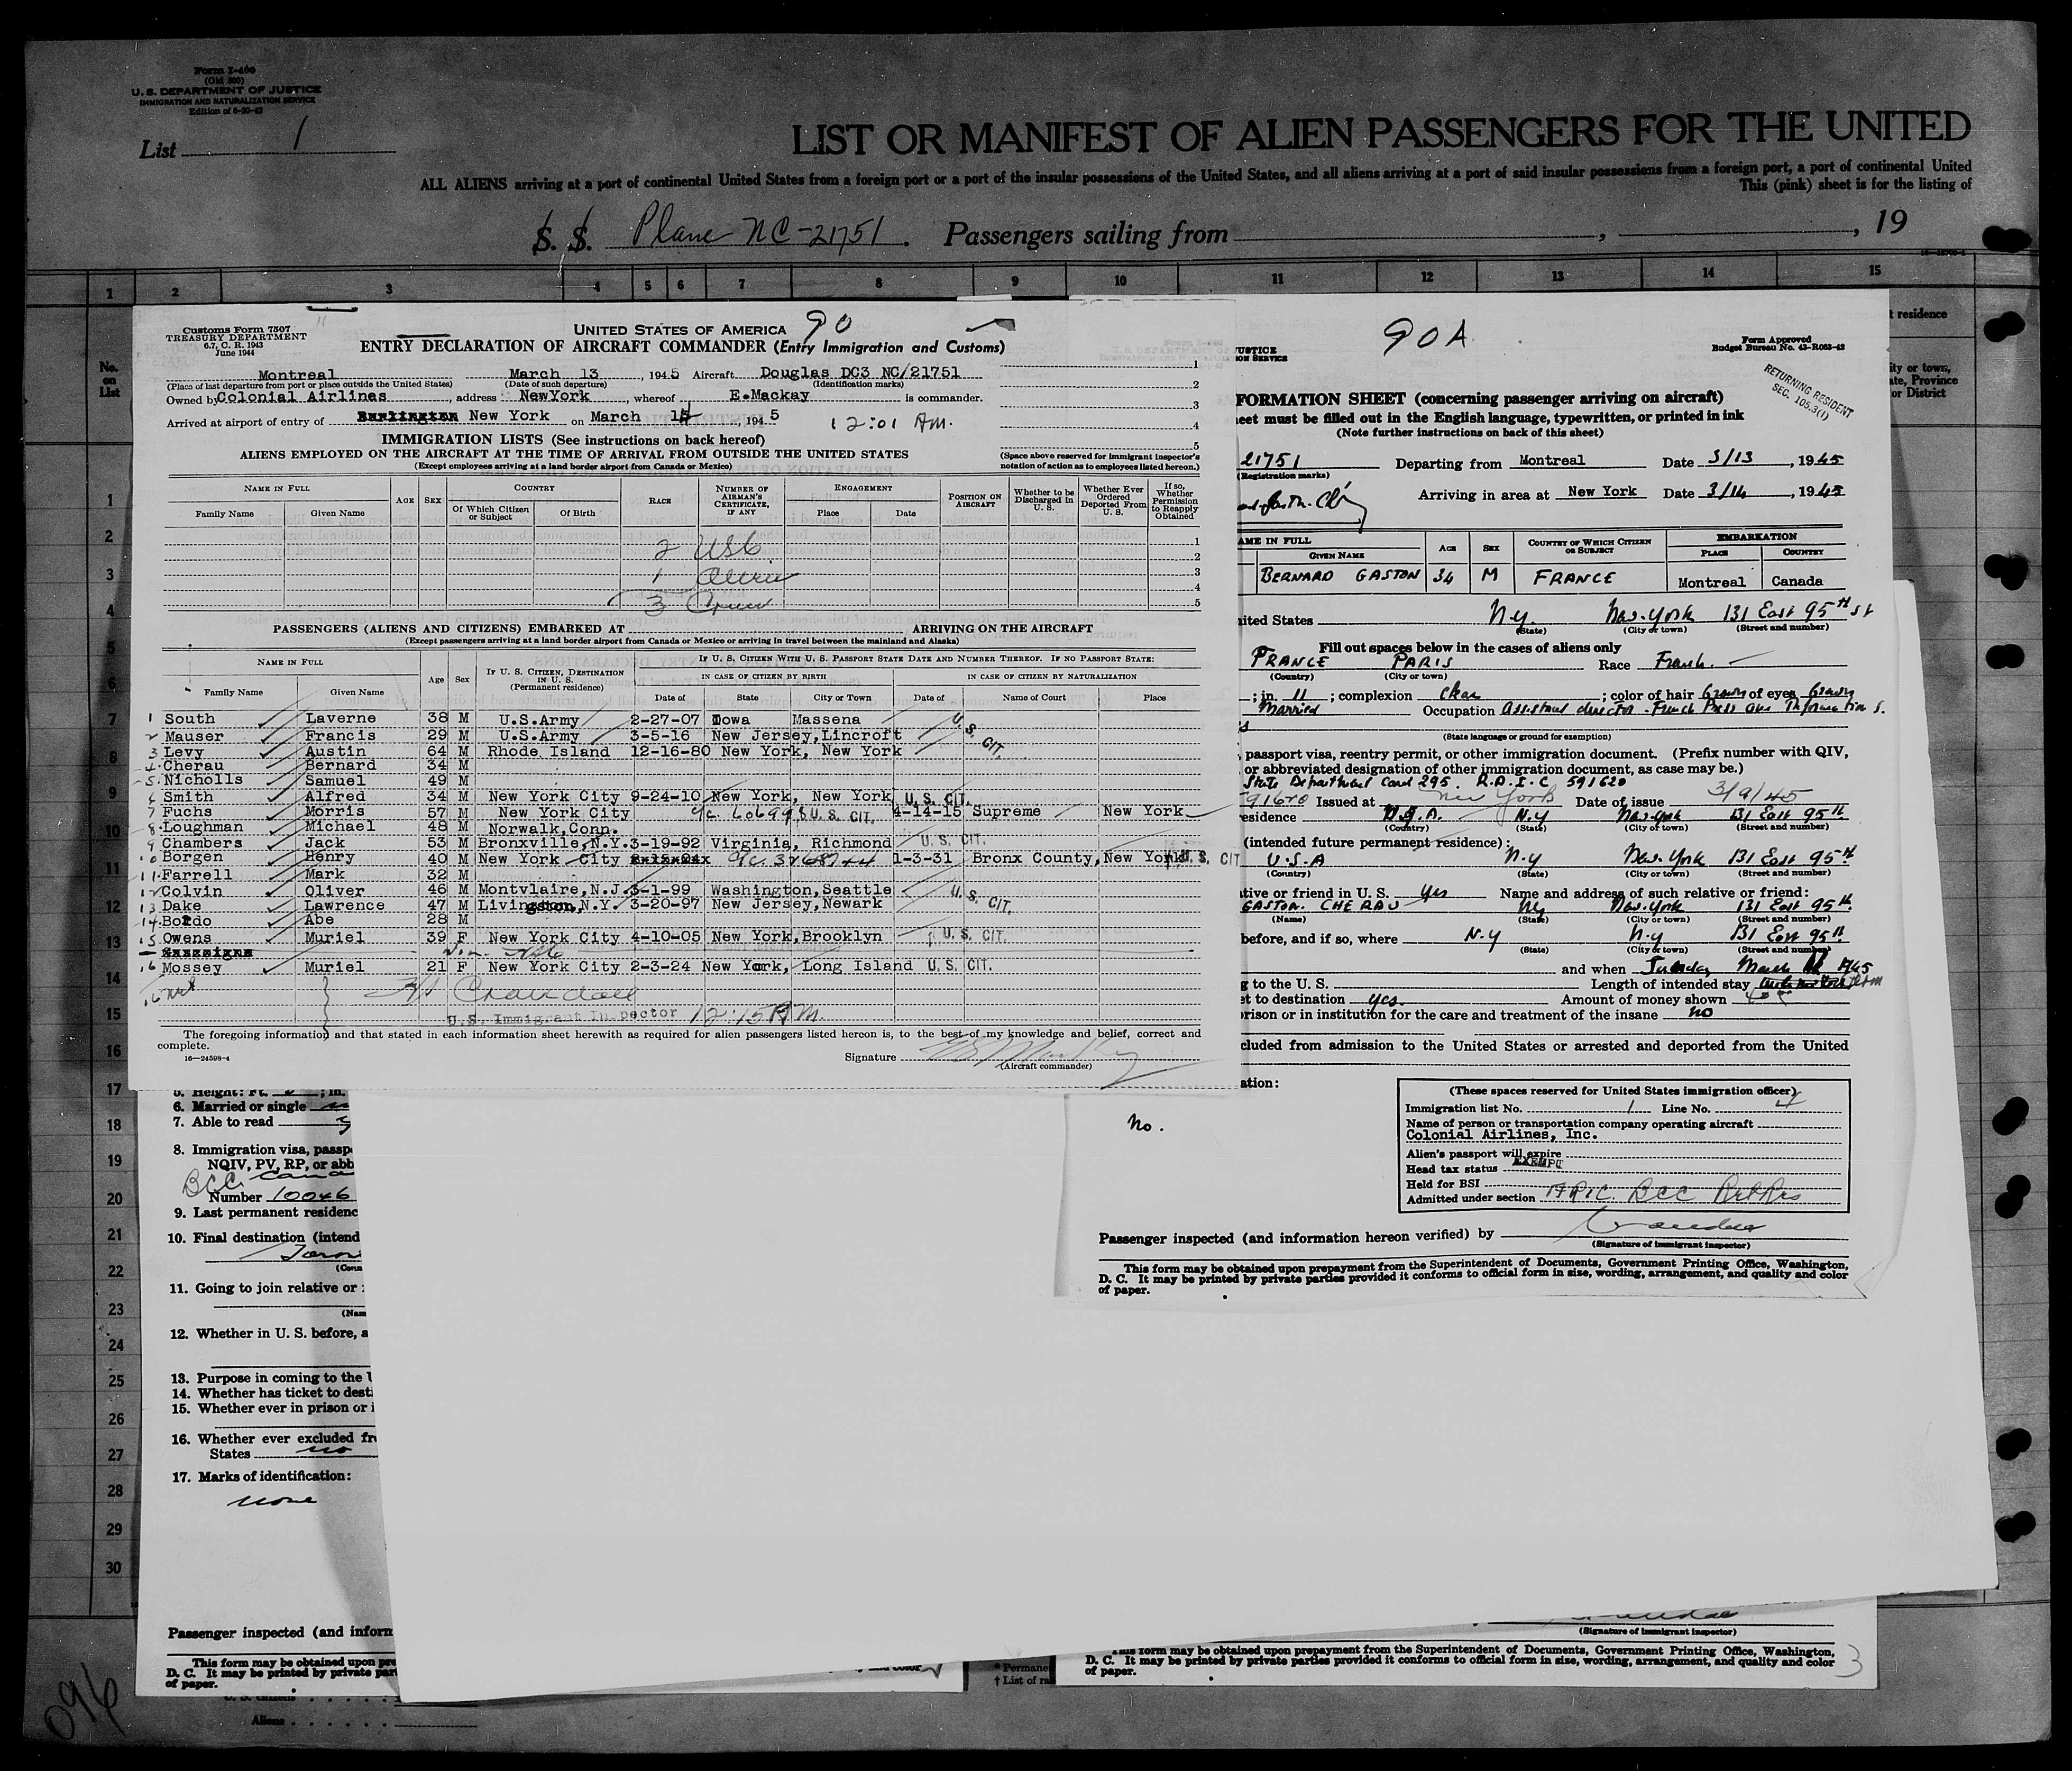 Form I-400
(Old 500)
U. S. DEPARTMENT OF JUSTICE
IMMIGRATION AND NATURALIZATION SERVICE
Edition of 6-20-42
List 1
LIST OR MANIFEST OF ALIEN PASSENGERS FOR THE UNITED
ALL ALIENS arriving at a port of continental United States from a foreign port or a port of the insular possessions of the United States, and all aliens arriving at a port of said insular possessions from a foreign port, a port of continental United
This (pink) sheet is for the listing of
S. S. Plane NC-21751. Passengers sailing from , , 19
1 2 3 4 5 6 7 8 9 10 11 12 13 14 15
No. on List
Customs Form 7507
TREASURY DEPARTMENT
6.7, C. R. 1943
June 1944
UNITED STATES OF AMERICA 90
ENTRY DECLARATION OF AIRCRAFT COMMANDER (Entry Immigration and Customs)
Montreal March 13, 1945 Aircraft Douglas DC3 NC/21751
(Place of last departure from port or place outside the United States) (Date of such departure) (Identification marks)
Owned by Colonial Airlines, address NewYork, whereof E.Mackay is commander.
Arrived at airport of entry of Burlington New York on March 14, 1945 12:01 AM.
IMMIGRATION LISTS (See instructions on back hereof)
ALIENS EMPLOYED ON THE AIRCRAFT AT THE TIME OF ARRIVAL FROM OUTSIDE THE UNITED STATES
(Except employees arriving at a land border airport from Canada or Mexico)
(Space above reserved for immigrant inspector's notation of action as to employees listed hereon.)
NAME IN FULL AGE SEX COUNTRY RACE NUMBER OF AIRMAN'S CERTIFICATE, IF ANY ENGAGEMENT POSITION ON AIRCRAFT Whether to be Discharged in U. S. Whether Ever Ordered Deported From U. S. If so, Whether Permission to Reapply Obtained
Family Name Given Name Of Which Citizen or Subject Of Birth Place Date
2 USC
1 Alien
3 Crew
PASSENGERS (ALIENS AND CITIZENS) EMBARKED AT ARRIVING ON THE AIRCRAFT
(Except passengers arriving at a land border airport from Canada or Mexico or arriving in travel between the mainland and Alaska)
NAME IN FULL Age Sex IF U. S. CITIZEN, DESTINATION IN U. S. (Permanent residence) IF U. S. CITIZEN WITH U. S. PASSPORT STATE DATE AND NUMBER THEREOF. IF NO PASSPORT STATE:
IN CASE OF CITIZEN BY BIRTH IN CASE OF CITIZEN BY NATURALIZATION
Family Name Given Name Date of State City or Town Date of Name of Court Place
1 South Laverne 38 M U.S.Army 2-27-07 Iowa Massena U. S. CIT.
2 Mauser Francis 29 M U.S.Army 3-5-16 New Jersey,Lincroft
3 Levy Austin 64 M Rhode Island 12-16-80 New York, New York
4 Cherau Bernard 34 M
5 Nicholls Samuel 49 M
6 Smith Alfred 34 M New York City 9-24-10 New York, New York U. S. CIT.
7 Fuchs Morris 57 M New York City U. S. CIT. 4-14-15 Supreme New York
8 Loughman Michael 48 M Norwalk,Conn.
9 Chambers Jack 53 M Bronxville,N.Y. 3-19-92 Virginia, Richmond U. S. CIT.
10 Borgen Henry 40 M New York City 1-3-31 Bronx County,New York U. S. CIT
11 Farrell Mark 32 M
12 Colvin Oliver 46 M Montvlaire,N.J. 3-1-99 Washington,Seattle U. S. CIT.
13 Dake Lawrence 47 M Livingston,N.Y. 3-20-97 New Jersey,Newark
14 Bordo Abe 28 M
15 Owens Muriel 39 F New York City 4-10-05 New York,Brooklyn U. S. CIT.
16 Mossey Muriel 21 F New York City 2-3-24 New York, Long Island U. S. CIT.
Crandall
U.S. Immigrant Inspector 12:15 AM.
The foregoing information and that stated in each information sheet herewith as required for alien passengers listed hereon is, to the best of my knowledge and belief, correct and complete.
16—24598-4
Signature
(Aircraft commander)
90A
Form Approved
Budget Bureau No. 43-R063-42
RETURNING RESIDENT
SEC. 105.3(1)
FORMATION SHEET (concerning passenger arriving on aircraft)
eet must be filled out in the English language, typewritten, or printed in ink
(Note further instructions on back of this sheet)
21751 Departing from Montreal Date 3/13, 1945
(Registration marks)
Arriving in area at New York Date 3/14, 1945
AME IN FULL AGE SEX COUNTRY OF WHICH CITIZEN OR SUBJECT EMBARKATION
GIVEN NAME PLACE COUNTRY
BERNARD GASTON 34 M FRANCE Montreal Canada
nited States N.Y. New-York 131 East 95th St
(State) (City or town) (Street and number)
Fill out spaces below in the cases of aliens only
FRANCE PARIS Race French
(Country) (City or town)
; in. 11; complexion Clear; color of hair Brown of eyes Brown
Married Occupation assistant director - French Press and Information S.
(State language or ground for exemption)
passport visa, reentry permit, or other immigration document. (Prefix number with QIV,
or abbreviated designation of other immigration document, as case may be.)
State Department Card 295. R.A.I.C 591620
91620 Issued at New York Date of issue 3/9/45
esidence U.S.A. N.Y New-York 131 East 95th
(Country) (State) (City or town) (Street and number)
(intended future permanent residence):
U.S.A N.Y New-York 131 East 95th
(Country) (State) (City or town) (Street and number)
tive or friend in U. S. yes Name and address of such relative or friend:
GASTON. CHERAU NY New-York 131 East 95th
(Name) (State) (City or town) (Street and number)
before, and if so, where N.Y N.Y 131 East 95th
(State) (City or town) (Street and number)
and when Tuesday March 1945
g to the U. S. Length of intended stay
et to destination yes. Amount of money shown
rison or in institution for the care and treatment of the insane no
cluded from admission to the United States or arrested and deported from the United
ation:
No.
(These spaces reserved for United States immigration officer)
Immigration list No. 1 Line No. 4
Name of person or transportation company operating aircraft
Colonial Airlines, Inc.
Alien's passport will expire
Head tax status EXEMPT
Held for BSI
Admitted under section
Passenger inspected (and information hereon verified) by
(Signature of immigrant inspector)
This form may be obtained upon prepayment from the Superintendent of Documents, Government Printing Office, Washington,
D. C. It may be printed by private parties provided it conforms to official form in size, wording, arrangement, and quality and color
of paper.
5. Height: Ft. ; in.
6. Married or single
7. Able to read
8. Immigration visa, passp
NQIV, PV, RP, or abb
Number 10046
9. Last permanent residenc
10. Final destination (intend
(Coun
11. Going to join relative or
(Nam
12. Whether in U. S. before, a
13. Purpose in coming to the U
14. Whether has ticket to desti
15. Whether ever in prison or i
16. Whether ever excluded fr
States no
17. Marks of identification:
none
Passenger inspected (and inform
This form may be obtained upon pre
D. C. It may be printed by private par
of paper.
U. S. citizens
Aliens
* Permane
† List of ra
(Signature of immigrant inspector)
This form may be obtained upon prepayment from the Superintendent of Documents, Government Printing Office, Washington,
D. C. It may be printed by private parties provided it conforms to official form in size, wording, arrangement, and quality and color
of paper.
3
096